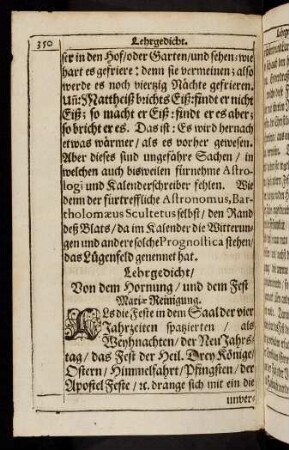 350
Lehrgedicht.
ser in den Hof/oder Garten/und sehen/wie
hart es gefriere: denn sie vermeinen; also
werde es noch viertzig Nächte gefrieren.
Uñ: Mattheiß brichts Eiß: findt er nicht
Eiß; so macht er Eiß: findt er es aber;
so bricht er es. Das ist: Es wird hernach
etwas wärmer/als es vorher gewesen.
Aber dieses sind ungefähre Sachen/in
welchen auch bisweilen fürnehme Astro-
logi und Kalenderschreiber fehlen. Wie
denn der fürtreffliche Astronomus, Bar-
tholomæus Scultetus selbst/den Rand
deß Blats/da im Kalender die Witterun-
gen und andere solche Prognostica stehen/
das Lügenfeld genennet hat.
Lehrgedicht/
Von dem Hornung/und dem Fest
Mariæ Reinigung.
ALs die Feste in dem Saal der vier
Jahrzeiten spazierten/als
Weyhnachten/der Neu Jahrs-
tag/das Fest der Heil. Drey Könige/
Ostern/Himmelfahrt/Pfingsten/der
Apostel Feste/ꝛc. drange sich mit ein die
unver-